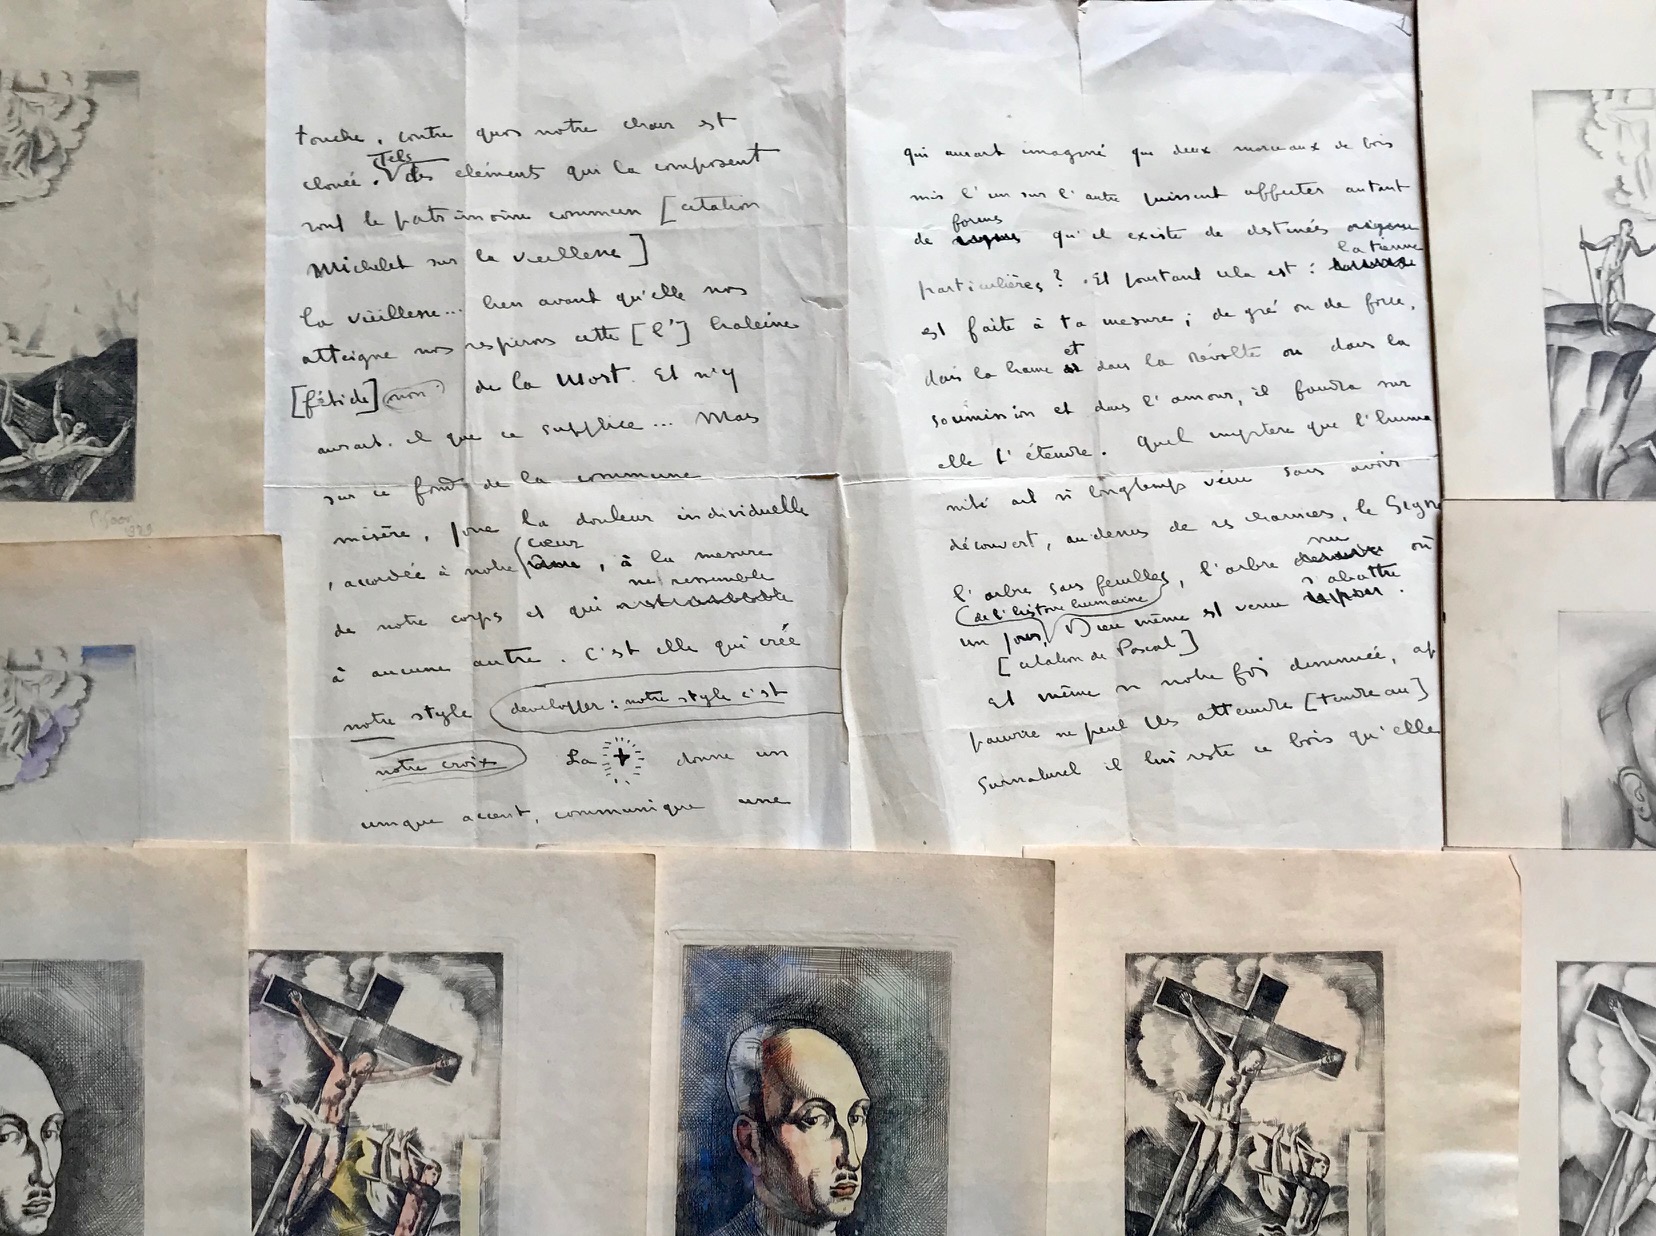 touche, contre quoi notre chair est
clouée. Tels des éléments qui la composent
sont le patrimoine commun [citation
Michelet sur la vieillesse]
la vieillesse... bien avant qu'elle nos
atteigne nos respirons cette [l'] haleine
[fétide] (non) de la Mort. Et n'y
aurait-il que ce supplice... Mais
sur ce fond de la commune
misère, joue la douleur individuelle
, accordée à notre cœur, à la mesure
de notre corps et qui ne ressemble
à aucune autre. C'est elle qui crée
notre style developper : notre style c'est
notre croix La + donne un
unique accent, communique une
qui aurait imaginé que deux morceaux de bois
mis l'un sur l'autre puissent affecter autant
de formes qu'il existe de destinés
particulières ? Et pourtant cela est : la tienne
est faite à ta mesure ; de gré ou de force,
dans la haine et dans la révolte ou dans la
soumission et dans l'amour, il faudra sur
elle t'étendre. Quel mystère que l'huma
nité ait si longtemps vécu sans avoir
découvert, au dessus de ses charniers, le Signe
l'arbre sans feuilles, l'arbre nu où
un jour (de l'histoire humaine) Dieu même est venu s'abattre.
[citation de Pascal]
Et même si notre foi diminuée, ap
pauvrie ne peut les atteindre [tendre au]
Surnaturel il lui reste ce bois qu'elle
1929